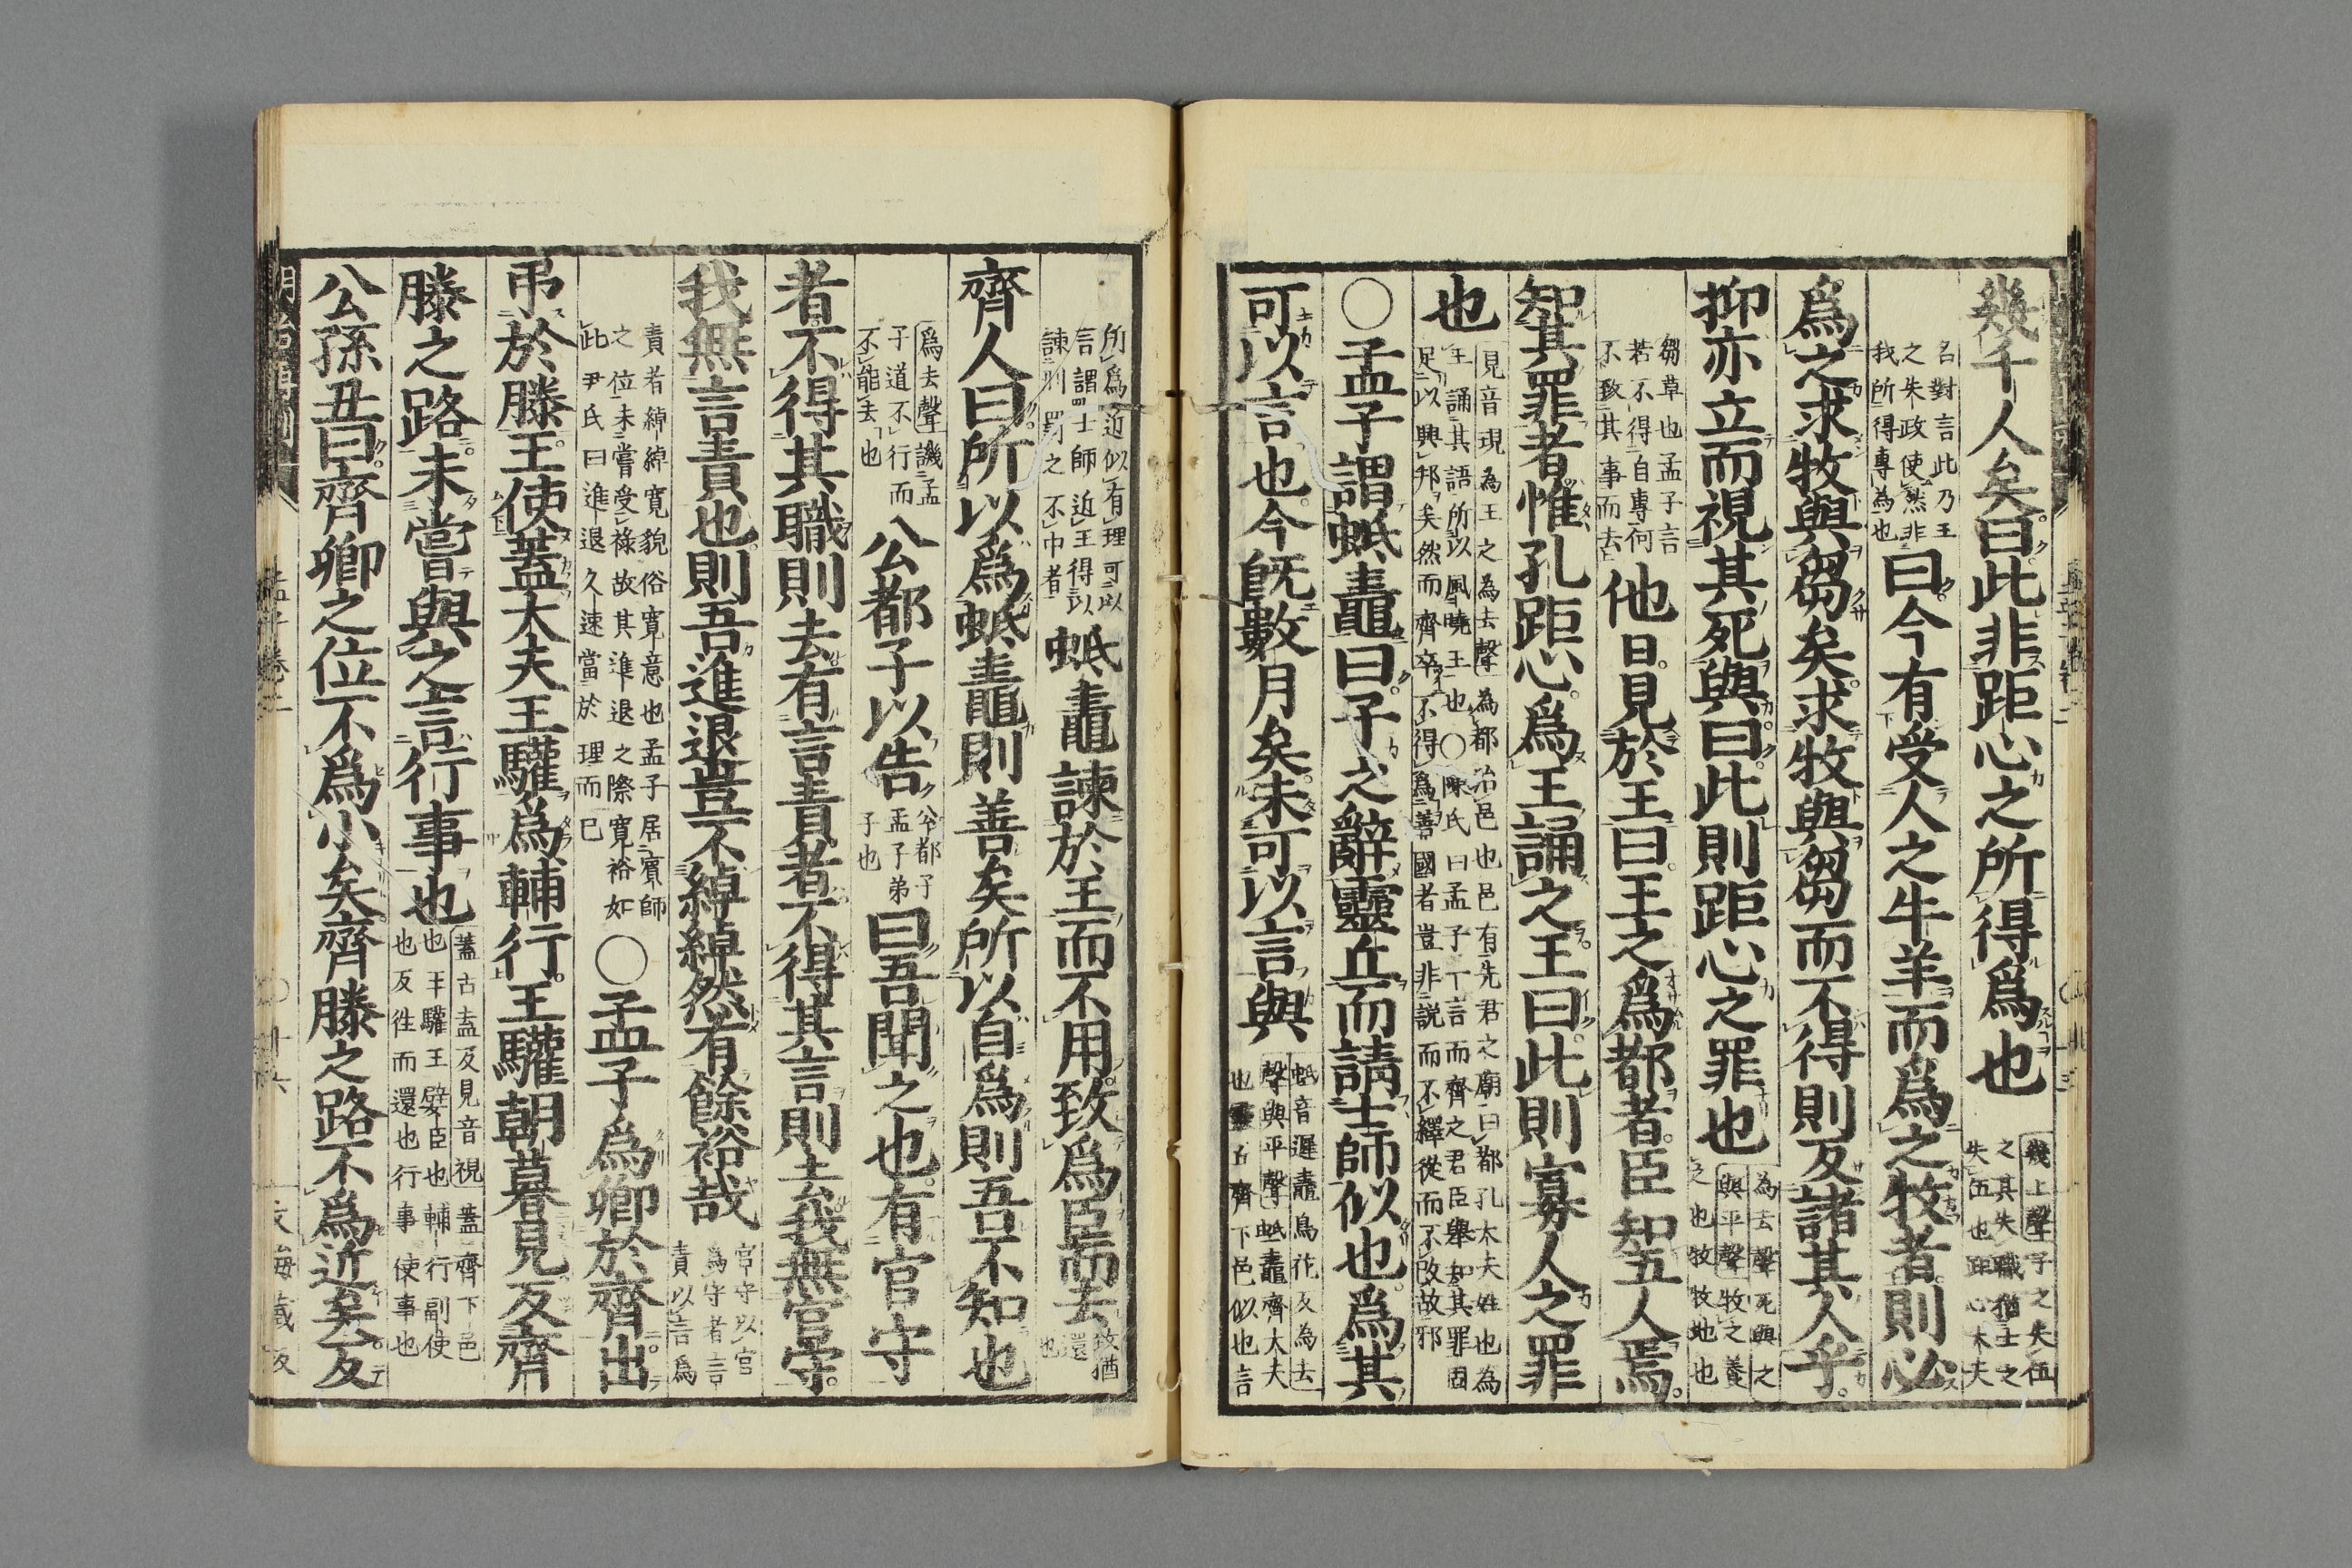 幾千人矣曰此非距心之所得爲也 幾上聲子之失伍
之其失職猶士之
失伍也距心大夫
名對言此乃王
之失政使然非
我所得專為也 曰今有受人之牛羊而爲之牧者則必
爲之求牧與芻矣求牧與芻而不得則反諸其人乎
抑亦立而視其死與曰此則距心之罪也 為去聲死與之
與平聲牧之養
之也牧牧地也
芻草也孟子言
若不得自專何
不致其事而去 他日見於王曰王之爲都者臣知五人焉
知其罪者惟孔距心爲王誦之王曰此則寡人之罪
也 見音現為王之為去聲為都治邑也邑有先君之廟曰都孔大夫姓也為
王誦其語所以風曉王也〇陳氏曰孟子一言而齊之君臣舉知其罪固
足以興邦矣然而齊卒不得為善國者豈非說而不繹從而不改故邪
〇孟子謂蚳鼃曰子之辭靈丘而請士師似也爲其
可以言也今既數月矣未可以言與 蚳音遲鼃烏花反為去
聲與平聲蚳鼃齊大夫
也靈丘齊下邑似也言
所為近似有理可以
言謂士師近王得以
諫刑罰之不中者 蚳鼃諫於王而不用致爲臣而去 致猶
還也
齊人曰所以爲蚳鼃則善矣所以自爲則吾不知也
爲去聲譏孟
子道不行而
不能去也 公都子以告 公都子
孟子弟
子也 曰吾聞之也有官守
者不得其職則去有言責者不得其言則去我無官守
我無言責也則吾進退豈不綽綽然有餘裕哉 官守以官
為守者言
責以言為
責者綽綽寛貌裕寛意也孟子居賓師
之位未嘗受祿故其進退之際寛裕如
此尹氏曰進退久速當於理而已 〇孟子爲卿於齊出
弔於滕王使蓋大夫王驩爲輔行王驩朝暮見反齊
滕之路未嘗與之言行事也 蓋古盍反見音現蓋齊下邑
也王驩王嬖臣也輔行副使
也反往而還也行事使事也
公孫丑曰齊卿之位不爲小矣齊滕之路不爲近矣反